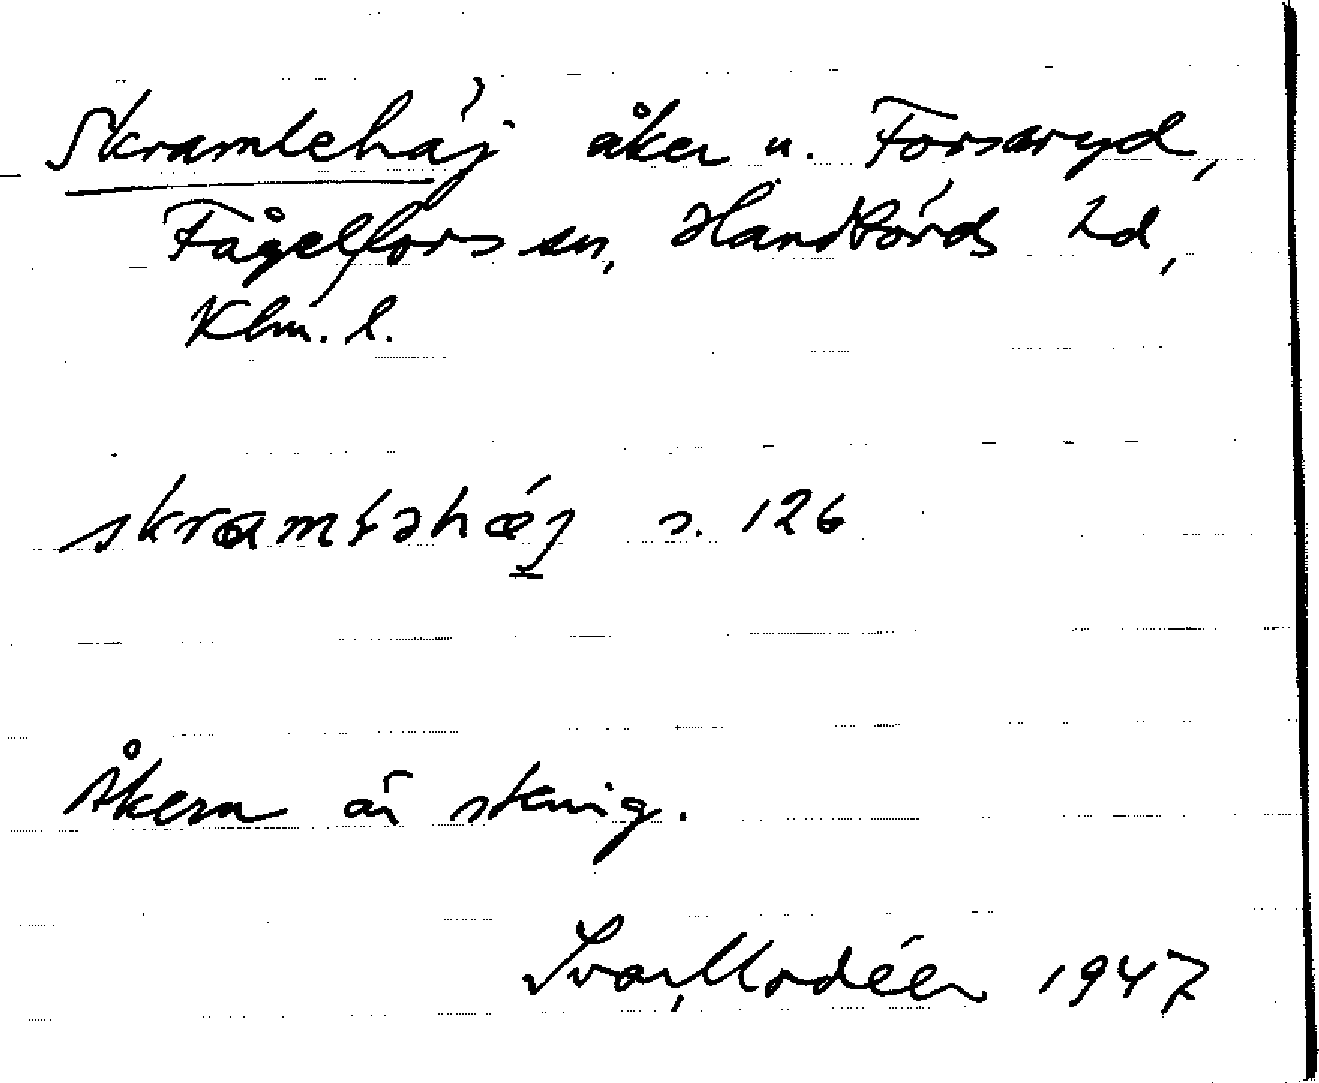 Skramlehäj åker u. Forsaryd,
Fågelfors sn, Handbörds hd,
Klm. l.
s. 126
Åkern är stenig.
Ivar Modéer 1947